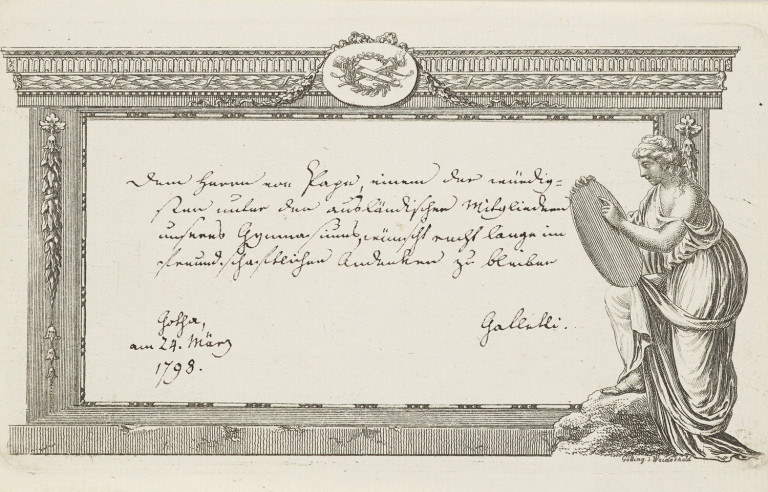 Dem Herrn von Pape, einem der würdig=
sten unter den ausländischen Mitgliedern
unseres Gymnasiums, wünscht recht lange im
freundschaftlichen Andenken zu bleiben
Gotha,
am 24. März
1798.
Galletti.